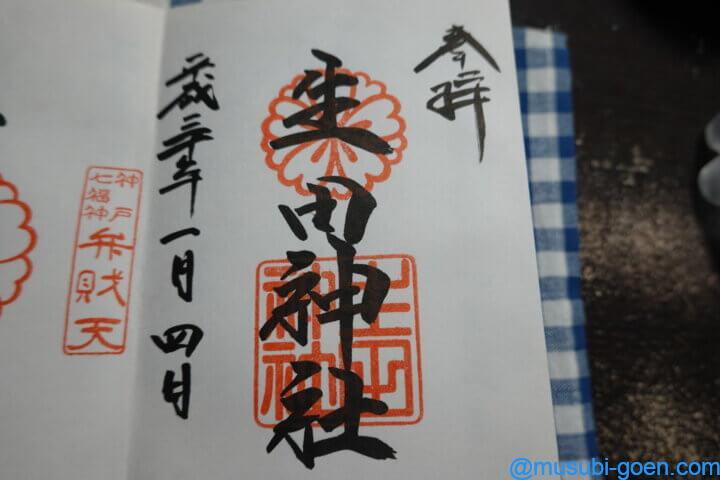 奉拝
生田神社
平成三十年一月四日
神戸
七福神
弁財天
生田
神社
@musubi-goen.com